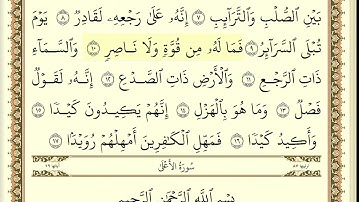 بَيْنِ ٱلصُّلْبِ وَٱلتَّرَآئِبِ ٧ إِنَّهُۥ عَلَىٰ رَجْعِهِۦ لَقَادِرٌ ٨ يَوْمَ
تُبْلَى ٱلسَّرَآئِرُ ٩ فَمَا لَهُۥ مِن قُوَّةٍ وَلَا نَاصِرٍ ١٠ وَٱلسَّمَآءِ
ذَاتِ ٱلرَّجْعِ ١١ وَٱلْأَرْضِ ذَاتِ ٱلصَّدْعِ ١٢ إِنَّهُۥ لَقَوْلٌ
فَصْلٌ ١٣ وَمَا هُوَ بِٱلْهَزْلِ ١٤ إِنَّهُمْ يَكِيدُونَ كَيْدًا ١٥
وَأَكِيدُ كَيْدًا ١٦ فَمَهِّلِ ٱلْكَٰفِرِينَ أَمْهِلْهُمْ رُوَيْدًۢا ١٧
سُورَةُ الأَعْلَىٰ
بِسْمِ ٱللَّهِ ٱلرَّحْمَٰنِ ٱلرَّحِيمِ